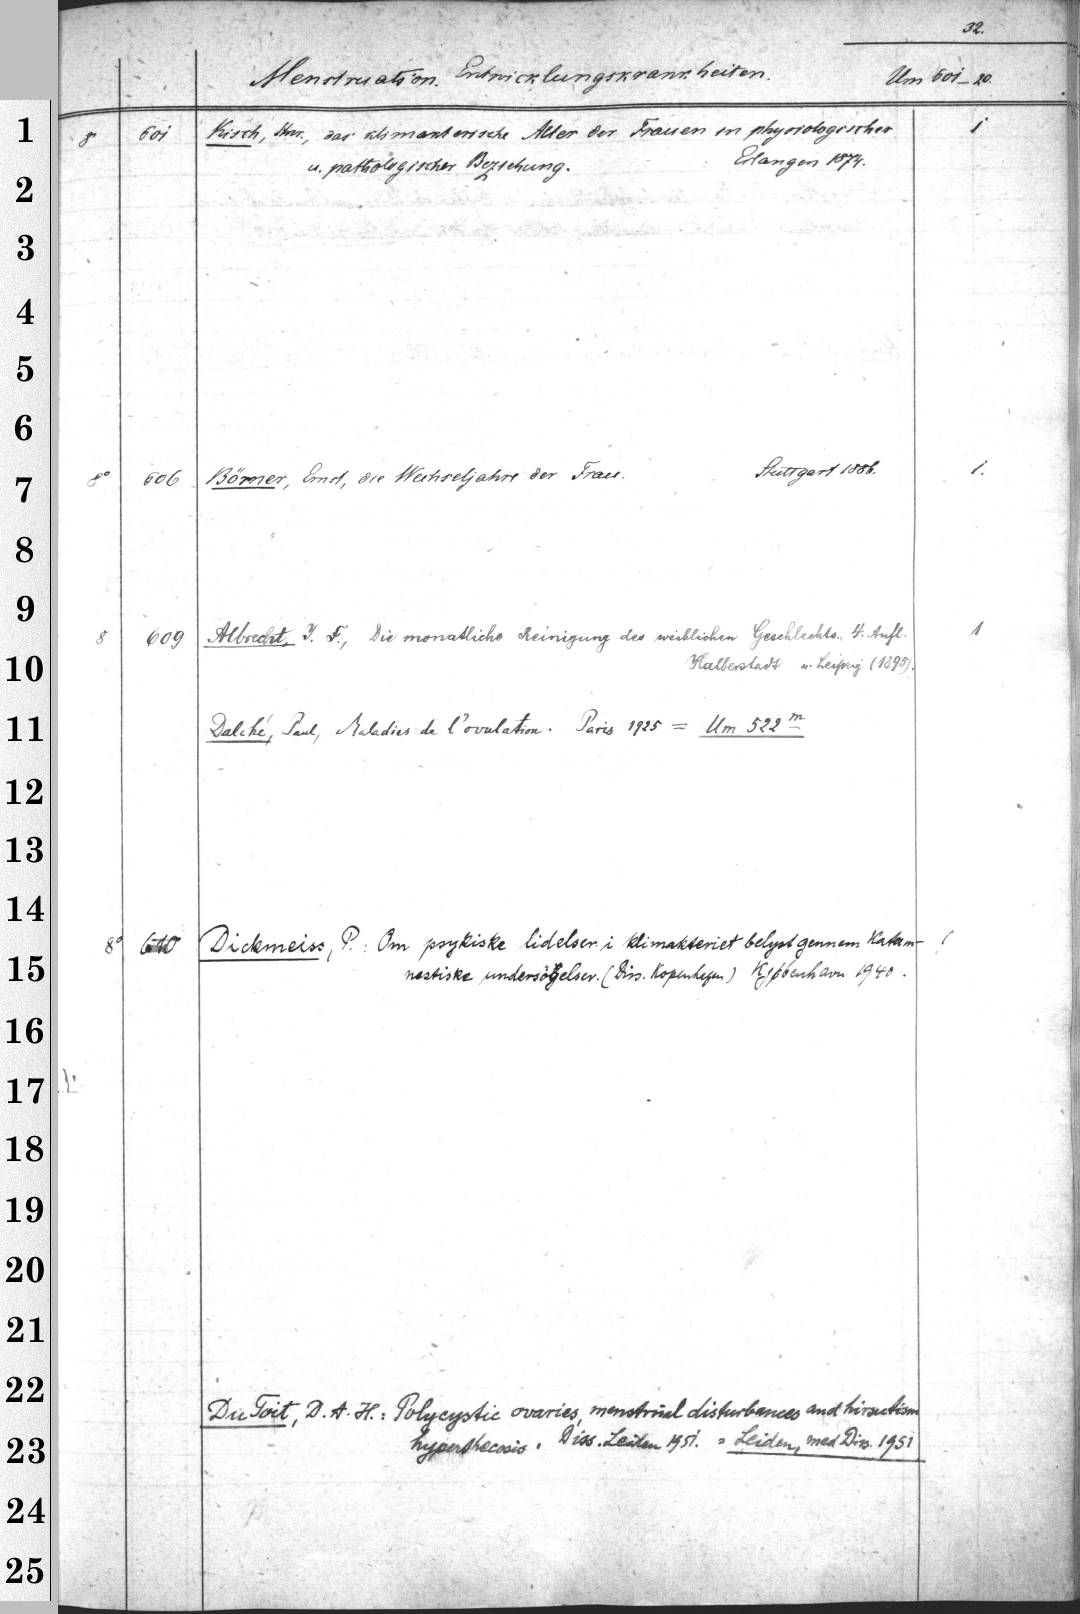 32.
Menstruation. Entwicklungskrankheiten. Um 601–20.
8 601 Kisch, Hnr., das klimakterische Alter der Frauen in physiologischer 1
u. pathologischer Beziehung. Erlangen 1874.
8° 606 Börner, Ernst, die Wechseljahre der Frau. Stuttgart 1886. 1.
8 609 Albrecht, J. F., Die monatliche Reinigung des weiblichen Geschlechts. 4. Aufl. 1
Halberstadt u. Leipzig (1895).
Dalché, Paul, Maladies de l'ovulation. Paris 1925 = Um 522 m
8° 610 Dickmeiss, P.: Om psykiske lidelser i klimakteriet belyst gennem Katam- 1
nestiske undersögelser. (Diss. Kopenhagen) København 1940.
Du Toit, D. A. H.: Polycystic ovaries, menstrual disturbances and hirsutism
hyperthecosis. Diss. Leiden 1951. = Leiden, med Diss. 1951
1
2
3
4
5
6
7
8
9
10
11
12
13
14
15
16
17
18
19
20
21
22
23
24
25